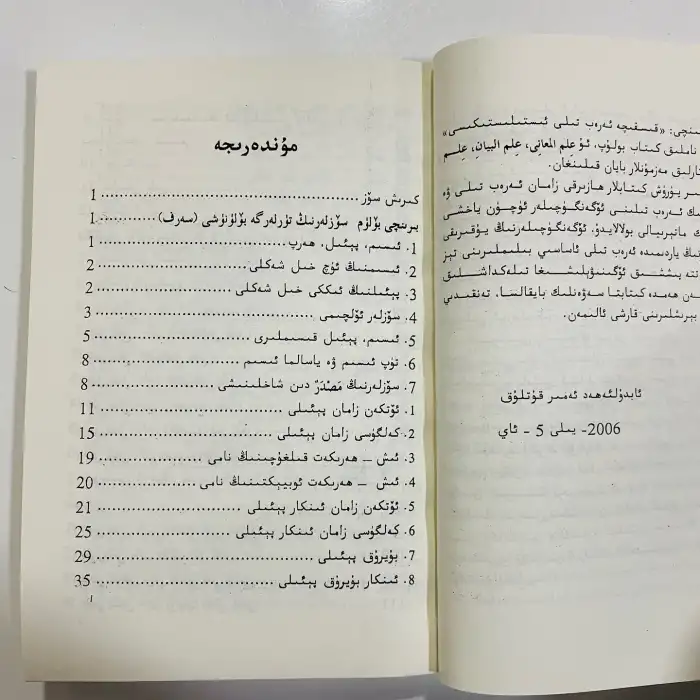 ىنچى: «قىسقىچە ئەرەب تىلى ئىستىلىستىكىسى»
ناملىق كىتاب بولۇپ، ئۇ علم المعاني، علم البيان، علم
تارلىق مەزمۇنلار بايان قىلىنغان.
سىر يۈرۈش كىتابلار ھازىرقى زامان ئەرەب تىلى ۋە
ىك ئەرەب تىلىنى ئۆگەنگۈچىلەر ئۈچۈن ياخشى
ك ماتېرىيالى بولالايدۇ. ئۆگەنگۈچىلەرنىڭ يۇقىرىقى
نىڭ ياردىمىدە ئەرەب تىلى ئاساسىي بىلىملىرىنى تېز
تتە پىششىق ئۆگىنىۋېلىشىغا تىلەكداشلىق
ەن ھەمدە كىتابتا سەۋەنلىك بايقالسا، تەنقىدىي
بېرىشلىرىنى قارشى ئالىمەن.
ئابدۇلئەھەد ئەمىر قۇتلۇق
2006- يىلى 5 - ئاي
مۇندەرىجە
كىرىش سۆز .......... 1
بىرىنچى بۆلۈم سۆزلەرنىڭ تۈرلەرگە بۆلۈنۈشى (سەرف) .......... 1
1. ئىسىم، پېئىل، ھەرپ .......... 1
2. ئىسىمنىڭ ئۈچ خىل شەكلى .......... 2
3. پېئىلنىڭ ئىككى خىل شەكلى .......... 2
4. سۆزلەر ئۆلچىمى .......... 3
5. ئىسىم، پېئىل قىسىملىرى .......... 5
6. تۈپ ئىسىم ۋە ياسالما ئىسىم .......... 8
7. سۆزلەرنىڭ مَصْدَرٌ دىن شاخلىنىشى .......... 8
1. ئۆتكەن زامان پېئىلى .......... 11
2. كەلگۈسى زامان پېئىلى .......... 15
3. ئىش – ھەرىكەت قىلغۇچىنىڭ نامى .......... 19
4. ئىش – ھەرىكەت ئوبيېكتىنىڭ نامى .......... 20
5. ئۆتكەن زامان ئىنكار پېئىلى .......... 21
6. كەلگۈسى زامان ئىنكار پېئىلى .......... 25
7. بۇيرۇق پېئىلى .......... 29
8. ئىنكار بۇيرۇق پېئىلى .......... 35